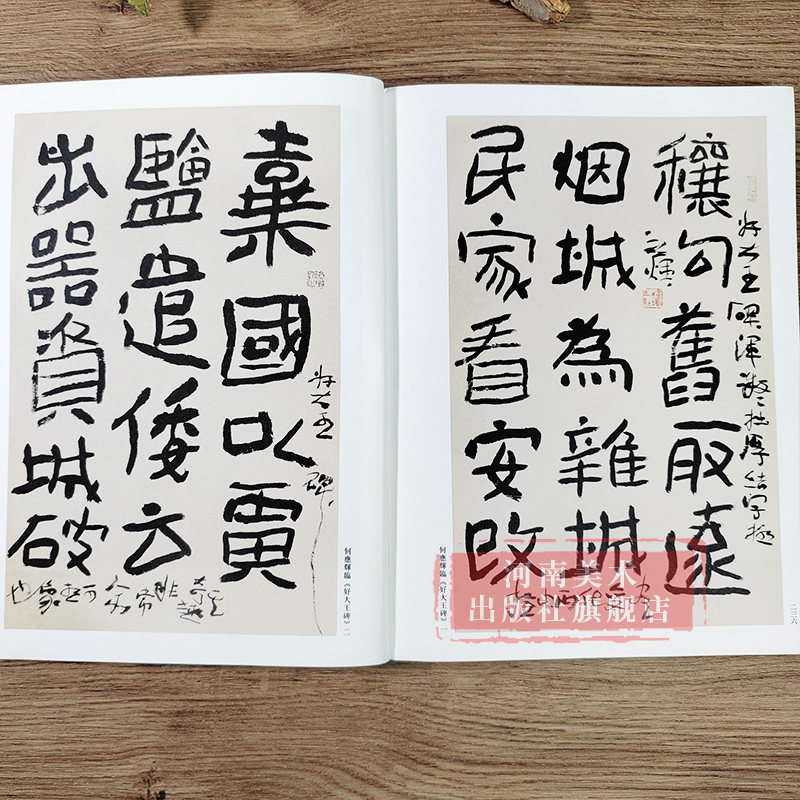 好大王碑渾凝拙厚結字极
穰勾舊取遠
烟城為雜城
民家看安改
二三六
何應輝臨《好大王碑》一
好大王碑
棄國以賈
鹽遣倭云
出器資城破
何應輝臨《好大王碑》二
河南美术
出版社旗舰店